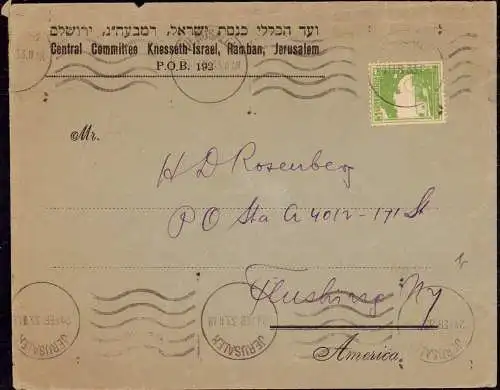 ועד הכללי כנסת ישראל, רמבעה״נ, ירושלים
Central Committee Knesseth-Israel, Ramban, Jerusalem
P.O.B. 192
Mr.
H D Rosenberg
PO Sta A 4012-171 St
Flushing NY
America.
JERUSALEM
JERUSALEM
JERUSALEM